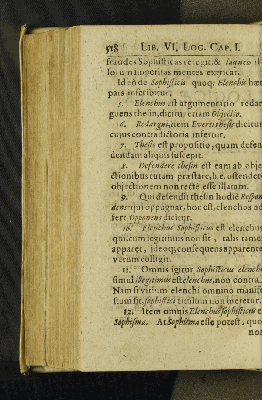 518 LIB. VI. LOG. CAP. I.
fraudes Sophisticas retegit, & laqueo il-
lorum imperitas mentes extricat.
Ideò de Sophisticis quoq; Elenchis hæc
pars inscribitur.
5. Elenchus est argumentatio redar-
guens thesin, dicitur etiam Objectio.
6. Redargui, item Everti thesis dicitur
cujus contradictoria infertur.
7. Thesis est propositio, quam defen-
dendam aliquis suscepit.
8. Defendere thesin est eam ab obje-
ctionibus tutam præstare, h.e. ostendere
objectionem non rectè esse illatam.
9. Qui defendit thesin hodiè Respon-
dens: qui oppugnat, hoc est, elenchos ad-
fert Opponens dicitur.
10. Elenchus Sophisticus est elenchus
qui cum legitimus non sit, talis tamen
apparet, ideoq; consequens apparenter
verum colligit.
11. Omnis igitur Sophisticus elenchus
simul illegitimus est elenchus, non contra.
Nam si vitium elenchi omnino manife-
stum sit, sophistici titulum non meretur.
12. Item omnis Elenchus sophisticus e
Sophisma. At Sophisma esse potest, quo
non